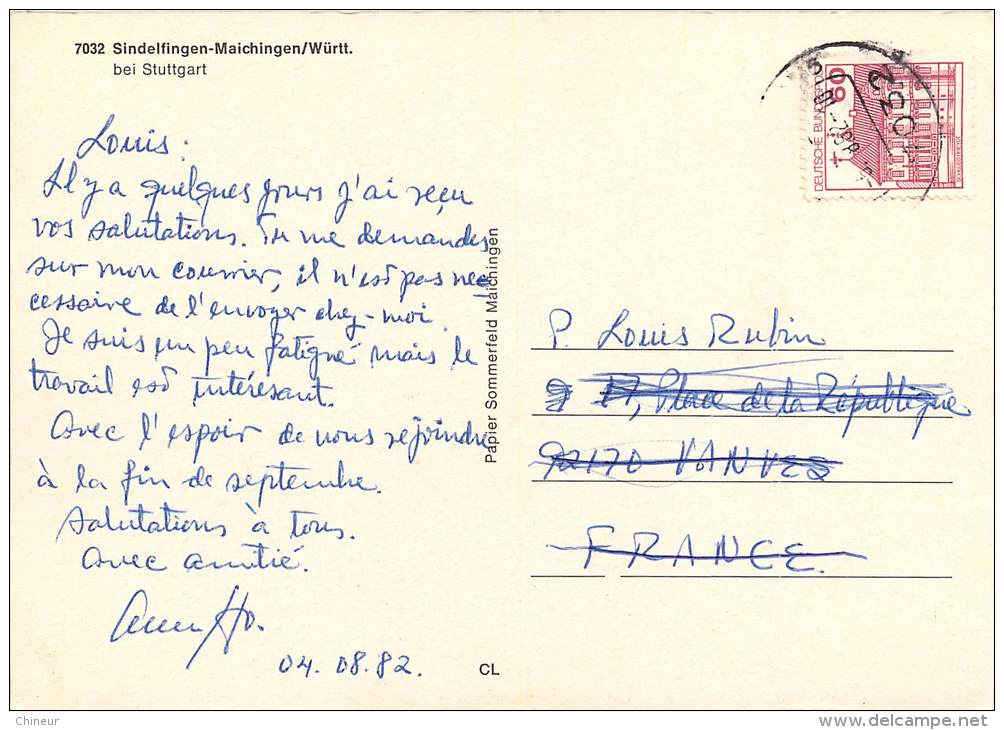 7032 Sindelfingen-Maichingen/Württ.
bei Stuttgart
Louis:
Il y a quelques jours j'ai reçu
vos salutations. Tu me demandes
sur mon courrier, il n'est pas né
cessaire de l'envoyer chez-moi.
Je suis un peu fatigué mais le
travail est intéresant.
Avec l'espoir de nous rejoindre
à la fin de septembre.
Salutations à tous.
Avec amitié.
04.08.82.
Papier Sommerfeld Maichingen
CL
DEUTSCHE BUNDESPOST
60
7032
P. Louis Rubin
9 17, Place de la République
92170 VANVES
FRANCE.
Chineur
delcampe.net